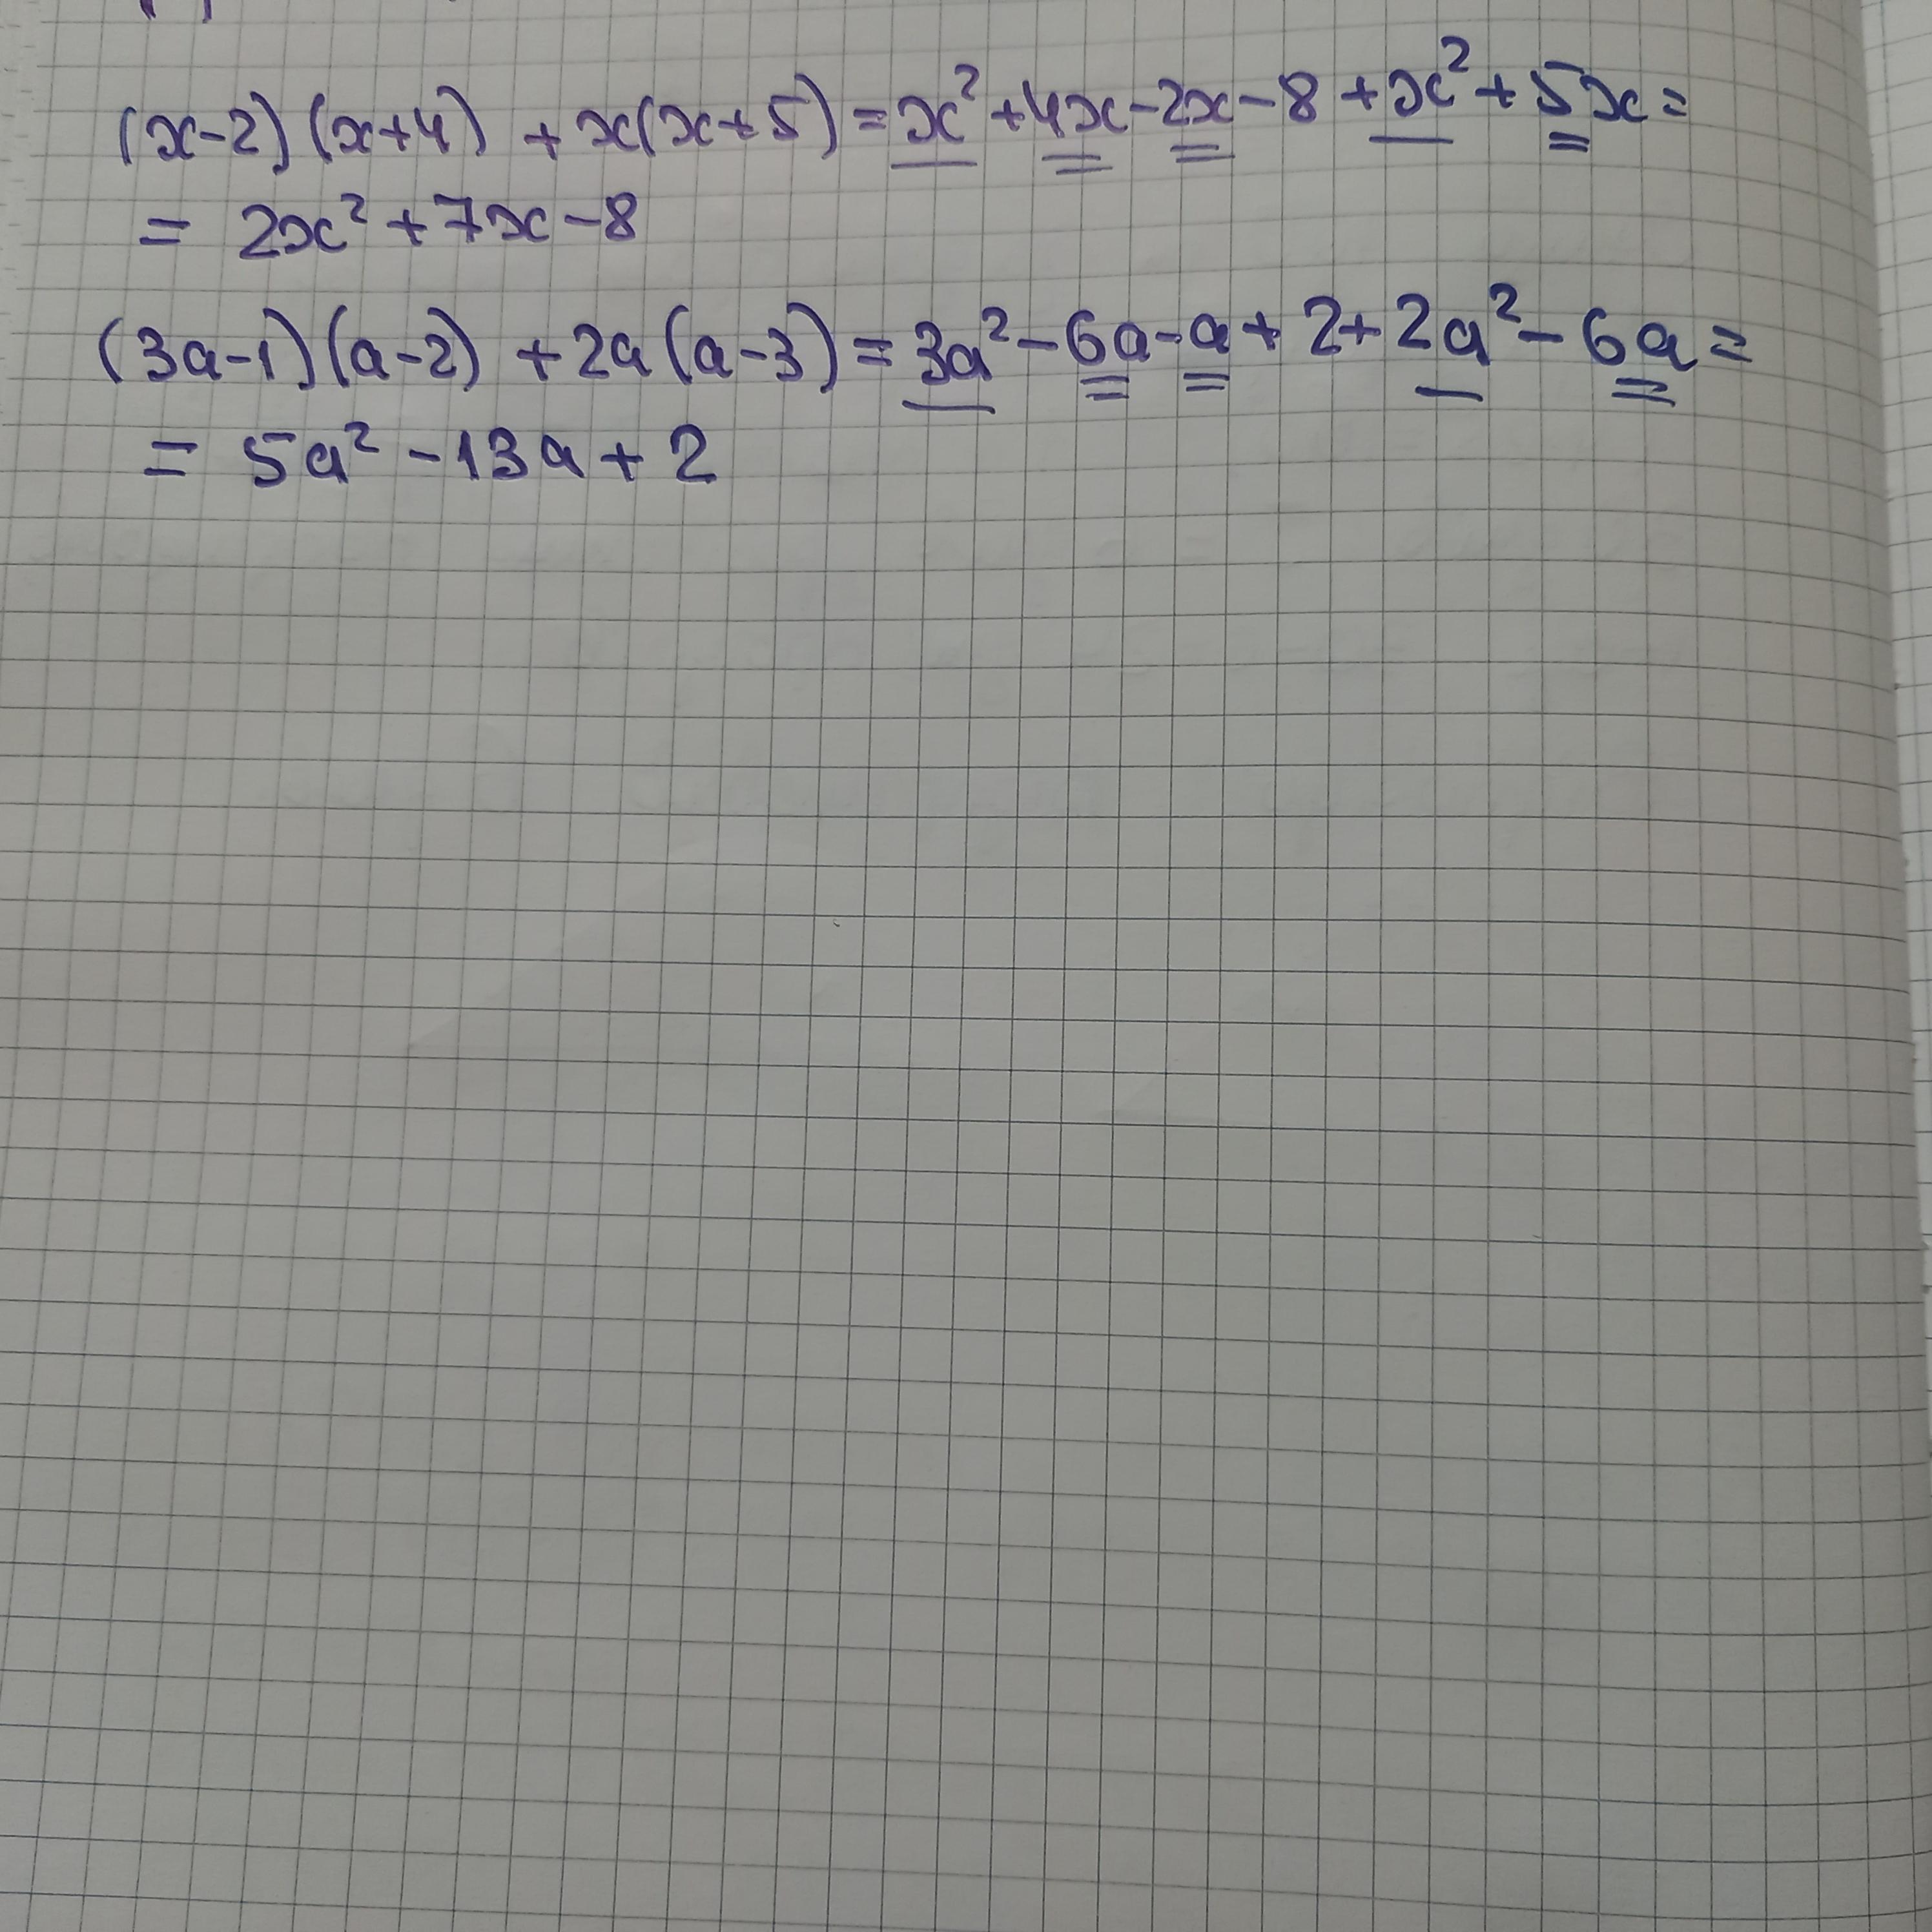 (x-2)(x+4) + x(x+5) = x² + 4x - 2x - 8 + x² + 5x =
= 2x² + 7x - 8
(3a-1)(a-2) + 2a(a-3) = 3a² - 6a - a + 2 + 2a² - 6a =
= 5a² - 13a + 2